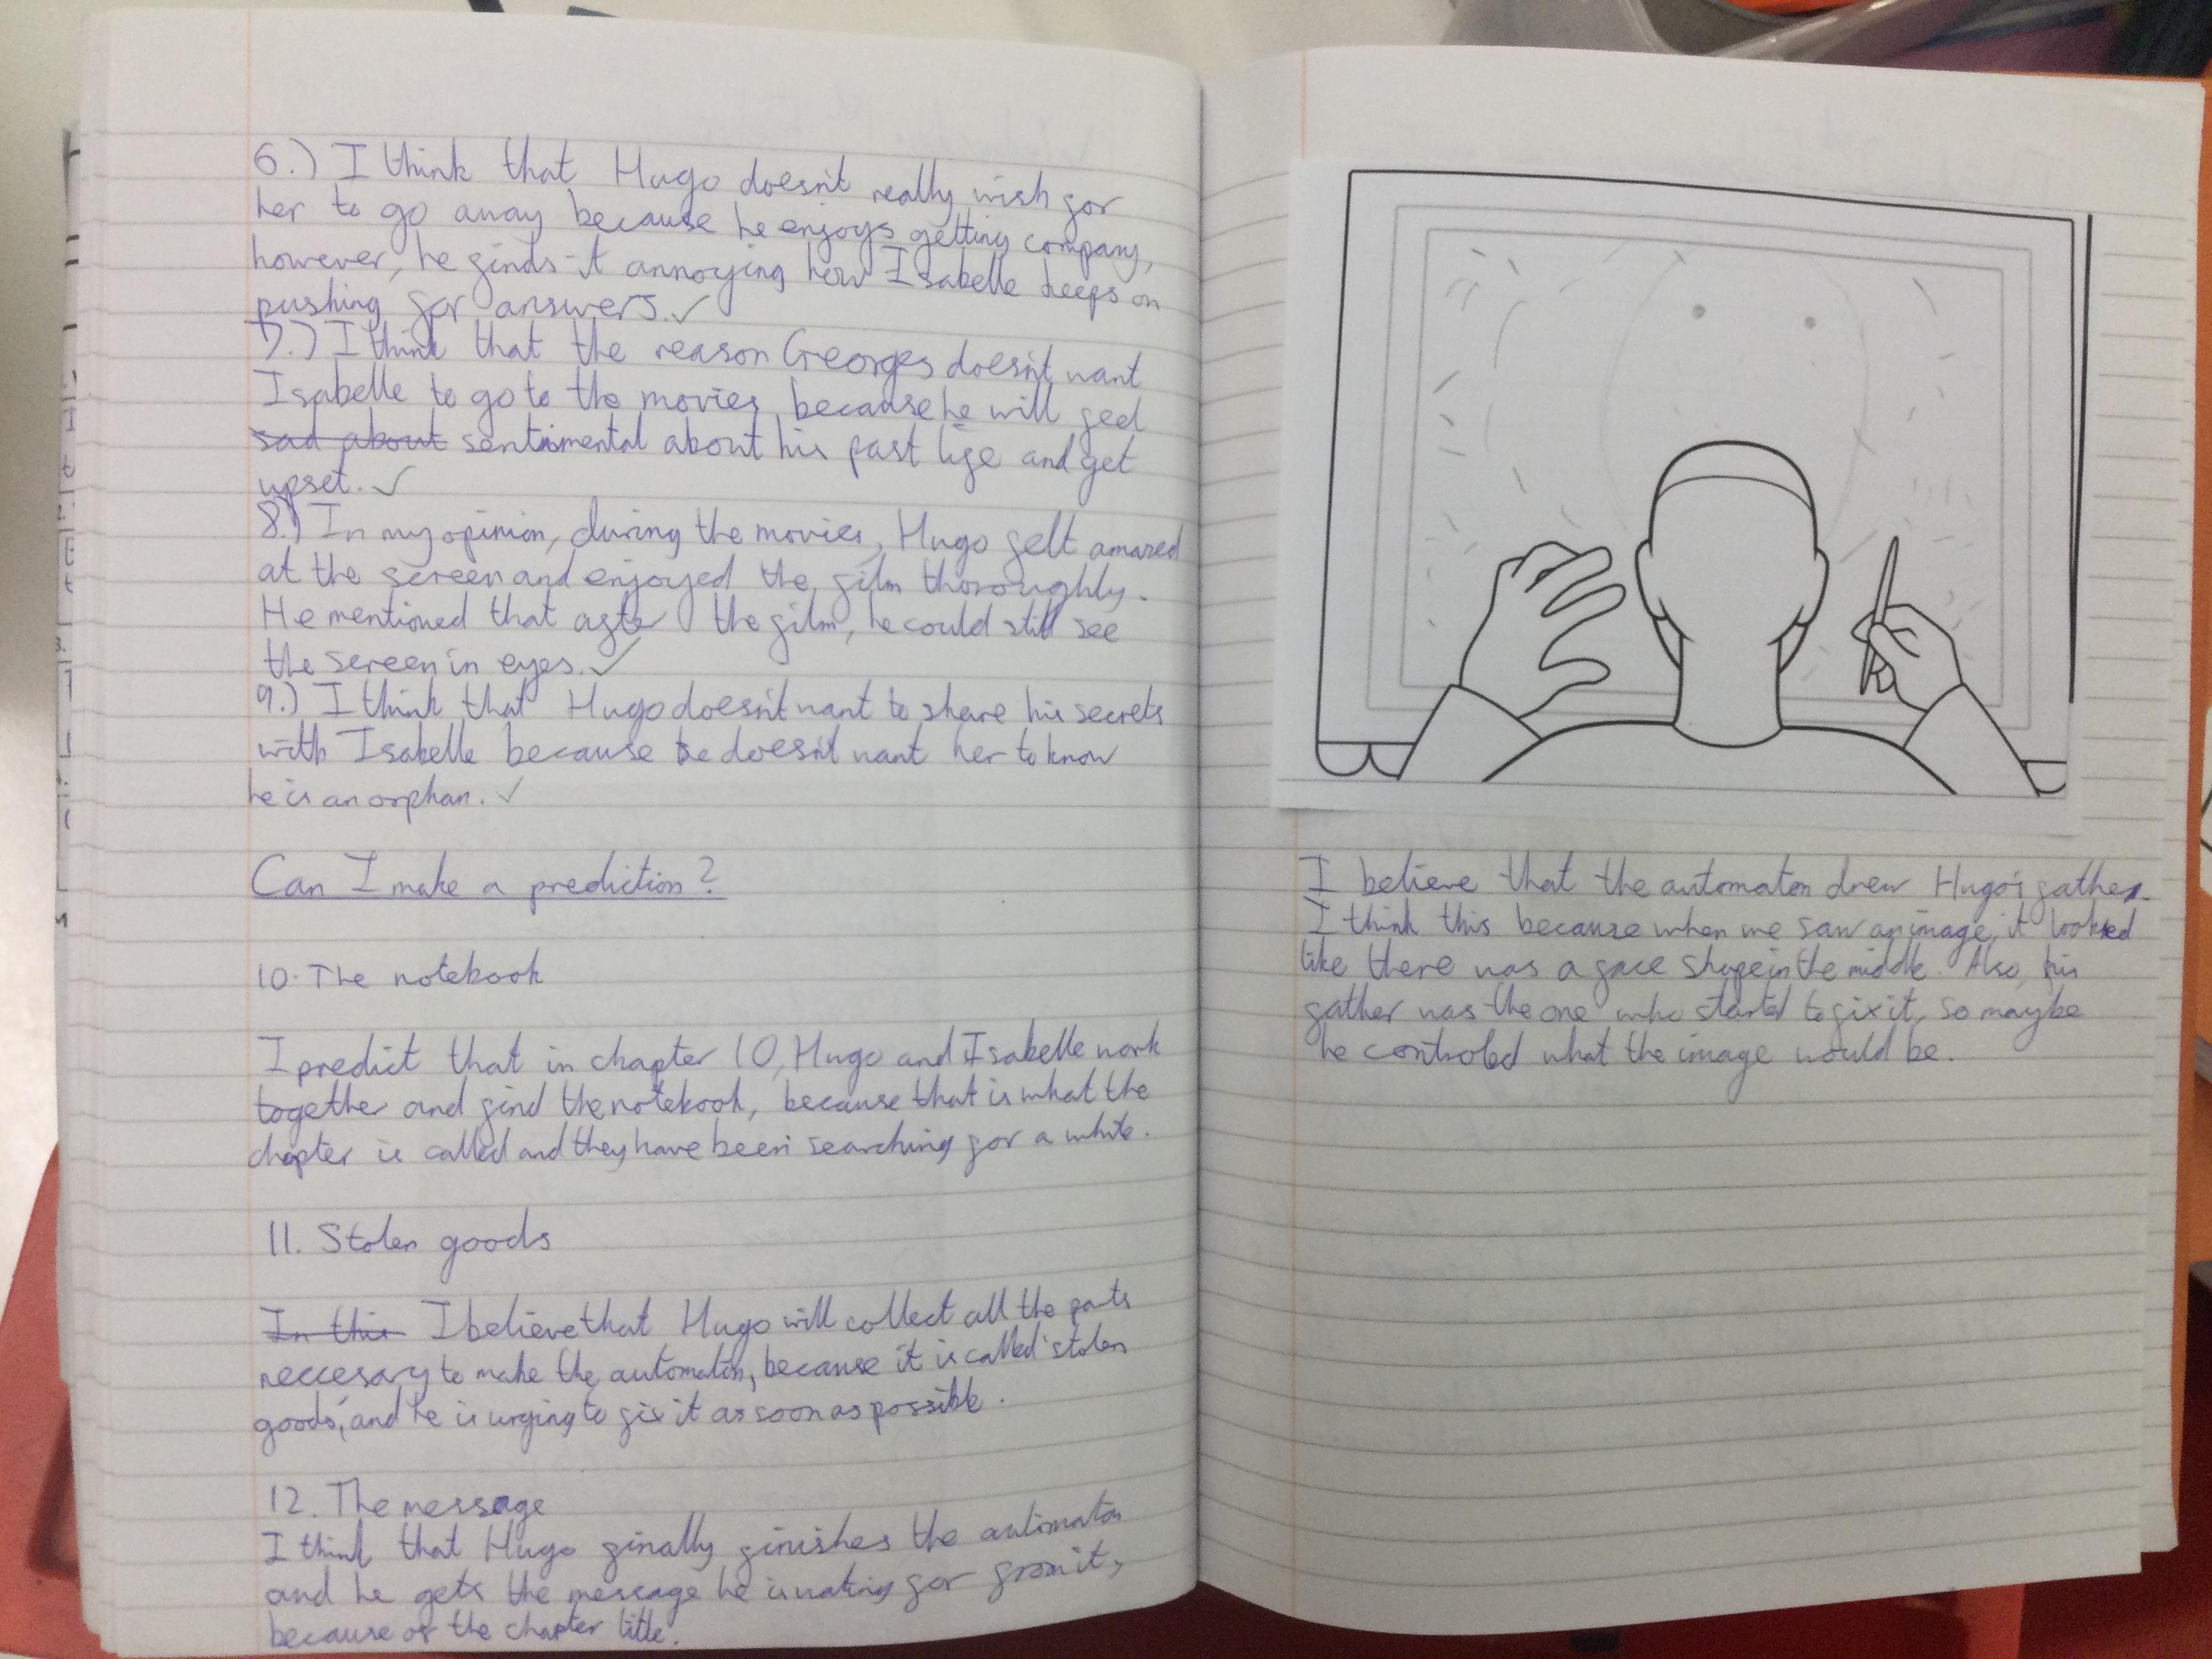 6.) I think that Hugo doesn't really wish for
her to go away because he enjoys getting company,
however, he finds it annoying how Isabelle keeps on
pushing for answers. ✓
7.) I think that the reason Georges doesn't want
Isabelle to go to the movies, because he will feel
sad about sentimental about his past life and get
upset. ✓
8.) In my opinion, during the movies, Hugo felt amazed
at the screen and enjoyed the film thoroughly.
He mentioned that after the film, he could still see
the screen in eyes. ✓
9.) I think that Hugo doesn't want to share his secrets
with Isabelle because he doesn't want her to know
he is an orphan. ✓
Can I make a prediction?
10. The notebook
I predict that in chapter 10, Hugo and Isabelle work
together and find the notebook, because that is what the
chapter is called and they have been searching for a while.
11. Stolen goods
In this I believe that Hugo will collect all the parts
neccesary to make the automaton, because it is called 'stolen
goods', and he is urging to fix it as soon as possible.
12. The message
I think that Hugo finally finishes the automaton
and he gets the message he is wating for from it,
because of the chapter title.
I believe that the automaton drew Hugo's father.
I think this because when we saw an image, it looked
like there was a face shape in the middle. Also, his
father was the one who started to fix it, so maybe
he controled what the image would be.